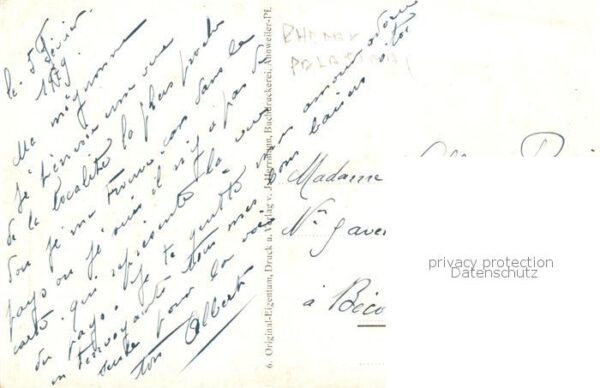 le 5 Février
1919
Ma mignonne
Je t'envoie une vue
de la localité la plus proche
dou je me trouve car dans le
pays ou je suis il n'y a pas de
carte qui représente la vue
du pays. Je te quitte mon amour adorée
en t'envoyant tous mes bons baisers à toi
seule pour la vie
ton Albert
6. Original-Eigentum, Druck u. Verlag v. J. Herrmann, Buchdruckerei, Annweiler-Pf.
RHENAN
PALATINAT
Madame
N°
à Béco
privacy protection
Datenschutz